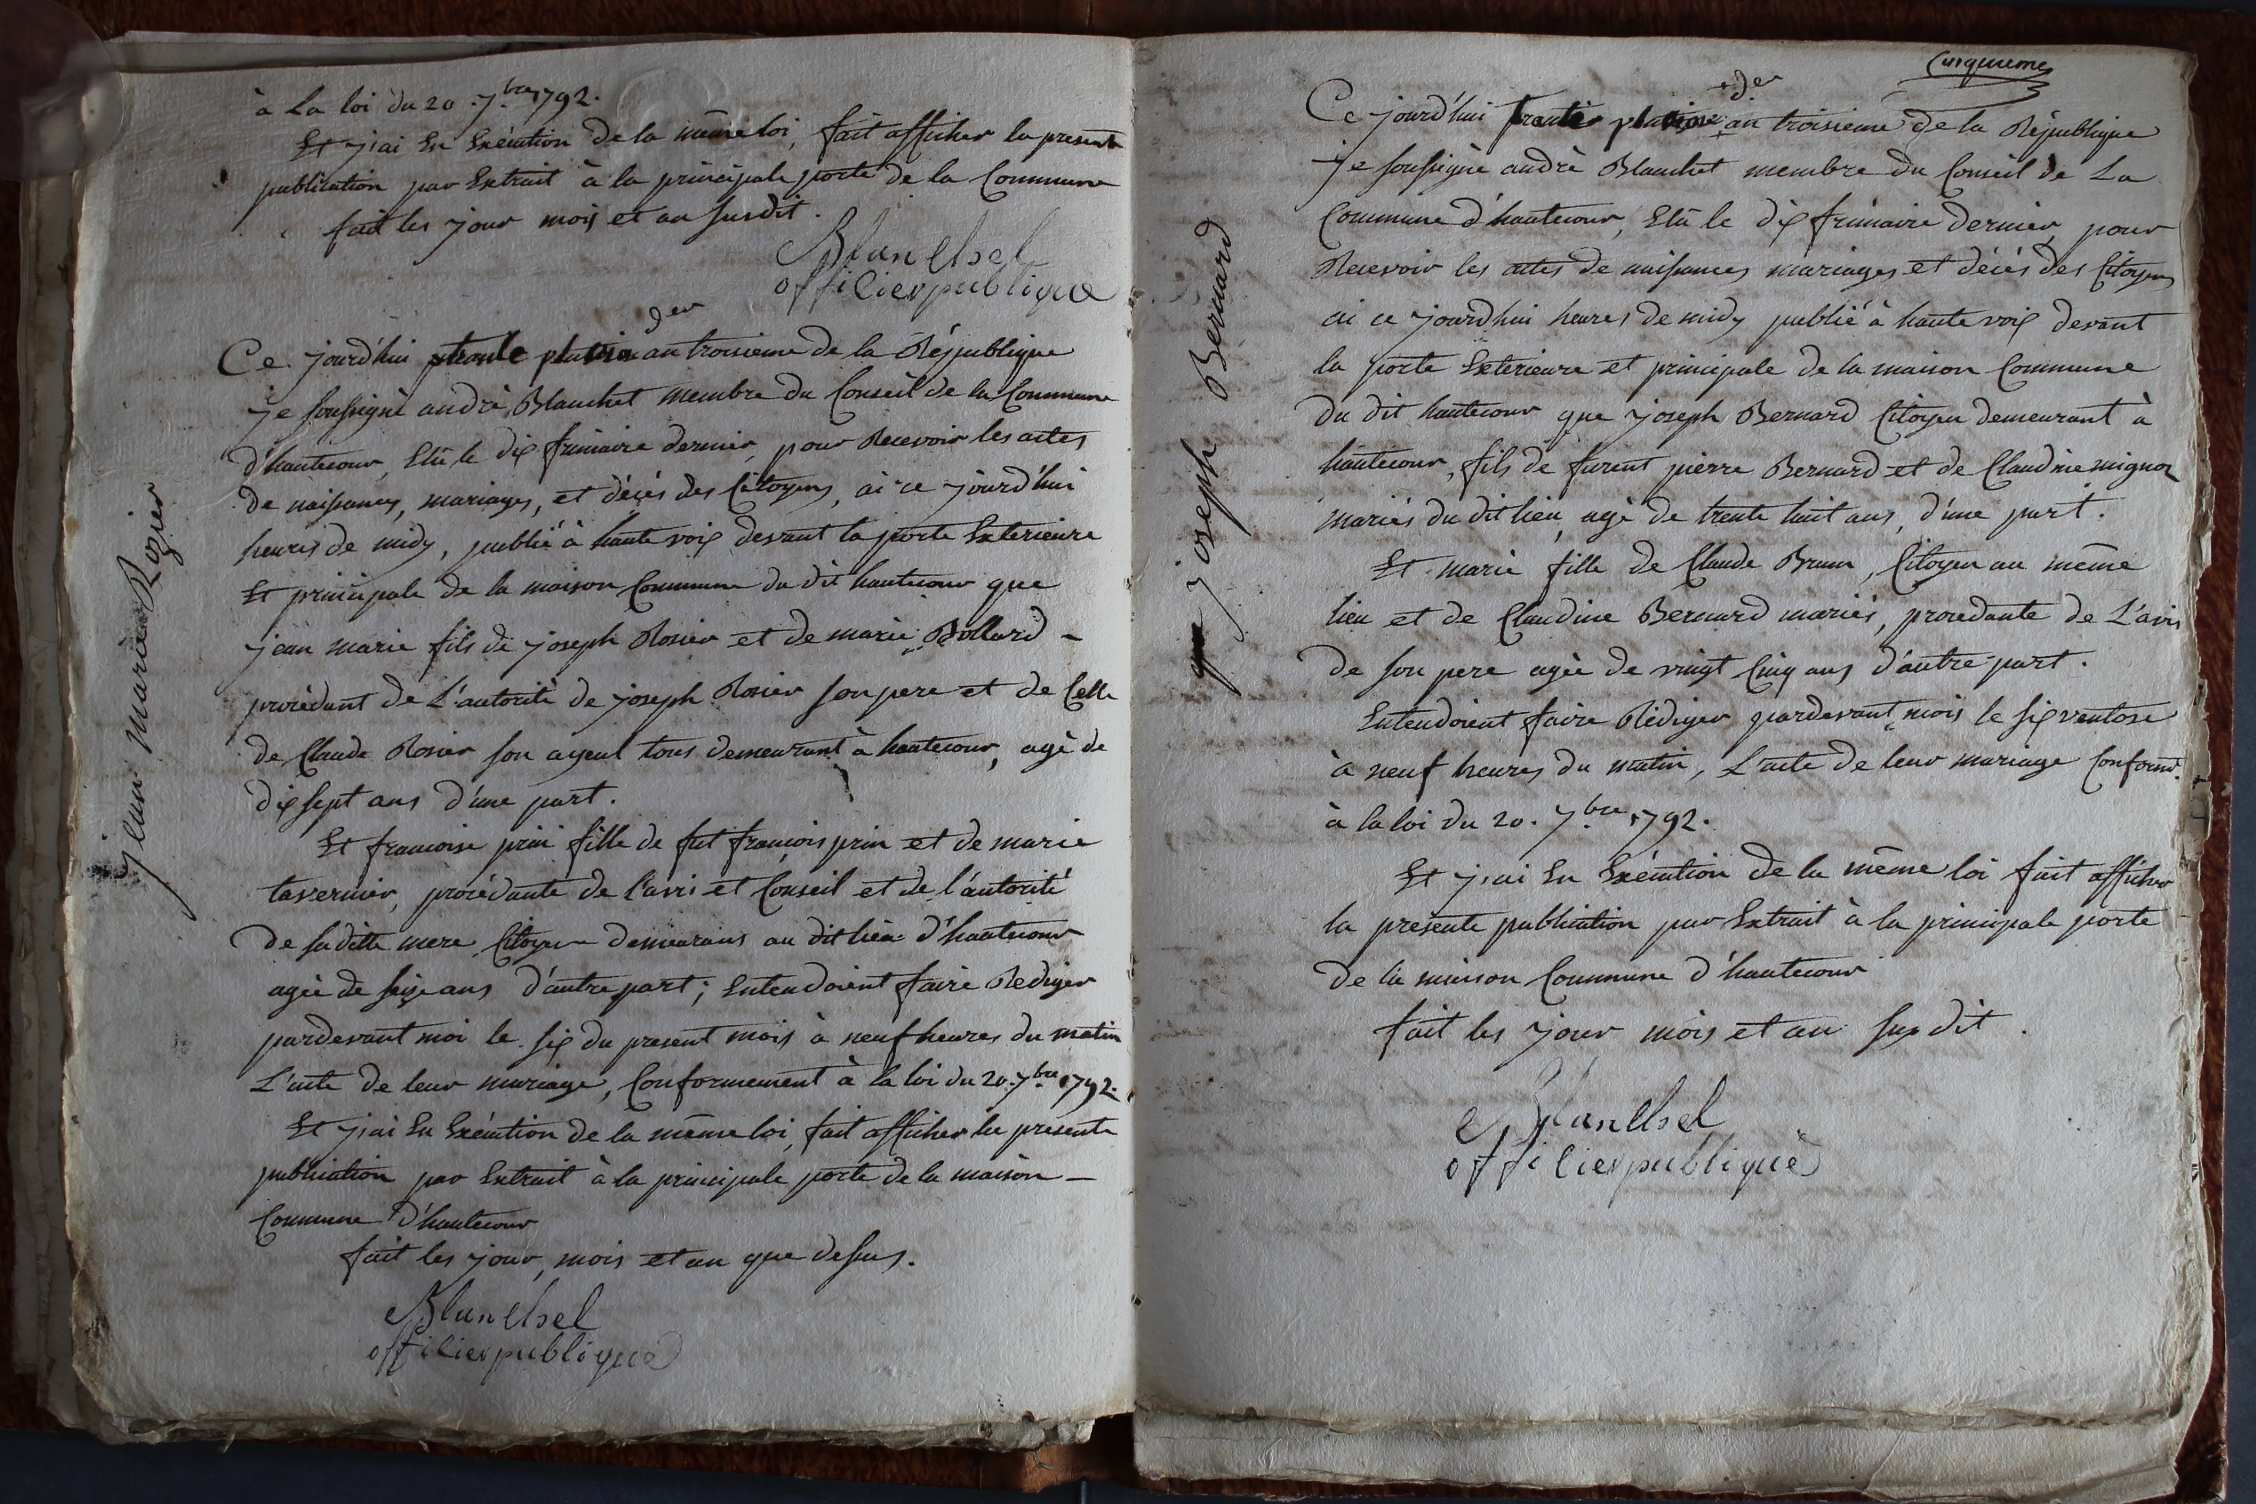 à La loi du 20 . 7.bre 1792.
Et j'ai En Exécution de la même loi, fait afficher la presente
publication par Extrait à la principale porte de la Commune
fait les jour mois et an susdit.
Blanchet
officier publique
der
Ce jourd'hui trente pluviose an troisieme de la République
je soussigné andré Blanchet membre du Conseil de la Commune
d'hautecour, Elû le dix frimaire dernier, pour Recevoir les actes
de naissances, mariages, et décés des Citoyens, ai ce jourd'hui
heures de midy, publié à haute voix devant la porte Exterieure
Et principale de la maison Commune du dit hautecour que
jean marie fils de joseph Rosier et de marie Bollard -
procédant de L'autorité de joseph Rosier son pere et de Celle
de Claude Rosier son ayeul tous demeurant à hautecour, agé de
dix sept ans d'une part.
Et francoise prin fille de fut françois prin et de marie
tavernier, procédante de l'avis et Conseil et de l'autorité
de sa ditte mere Citoyens demeurans au dit lieu d'hautecour
agée de seize ans d'autre part; Entendoient faire Rediger
pardevant moi le six du present mois à neuf heures du matin
L'acte de leur mariage, Conformement à la loi du 20. 7.bre 1792.
Et j'ai En Exécution de la même loi, fait afficher la presente
publication par Extrait à la principale porte de la maison -
Commune d'hautecour
fait les jour, mois et an que dessus.
Blanchet
officier publique
jean marie Rozier
Cinquieme
der
Ce jourd'hui trente pluviose an troisieme de la République
je soussigné andré Blanchet membre du Conseil de La
Commune d'hautecour, Elû le dix frimaire dernier, pour
Recevoir les actes de naissances mariages et décés des Citoyens
ai ce jourd'hui heures de midy publié à haute voix devant
la porte Exterieure et principale de la maison Commune
du dit hautecour que joseph Bernard Citoyen demeurant à
hautecour, fils de furent pierre Bernard et de Claudine mignot
mariés du dit lieu, agé de trente huit ans, d'une part.
Et marie fille de Claude Brun, Citoyen au même
lieu et de Claudine Bernard mariés, procedante de L'avis
de son pere agée de vingt Cinq ans d'autre part.
Entendoient faire Rédiger pardevant mois le six ventose
à neuf heures du matin, L'acte de leur mariage Conformt.
à la loi du 20. 7.bre 1792.
Et j'ai En Exécution de la même loi fait afficher
la presente publication par Extrait à la principale porte
de la maison Commune d'hautecour
fait les jour mois et an susdit.
Blanchet
officier publique
joseph Bernard